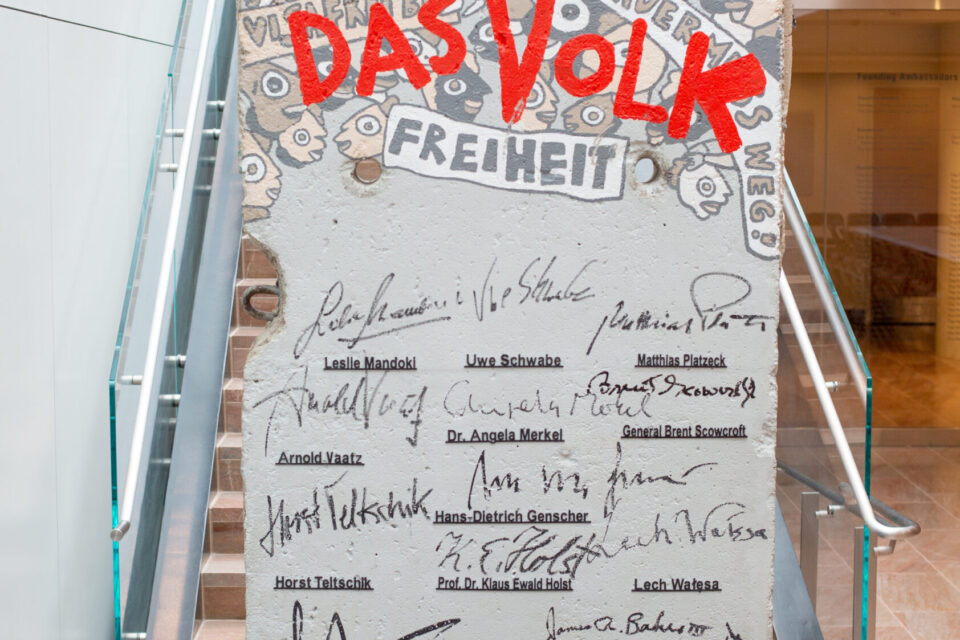 VIELEN
DAS VOLK
MAUER MUSS WEG!
FREIHEIT
Uwe Schwabe
Leslie Mandoki
Uwe Schwabe
Matthias Platzeck
Matthias Platzeck
Arnold Vaatz
Angela Merkel
Brent Scowcroft
Dr. Angela Merkel
General Brent Scowcroft
Arnold Vaatz
Horst Teltschik
Hans-Dietrich Genscher
K. E. Holst
Lech Wałęsa
Horst Teltschik
Prof. Dr. Klaus Ewald Holst
Lech Wałęsa
James A. Baker III
Founding Ambassadors